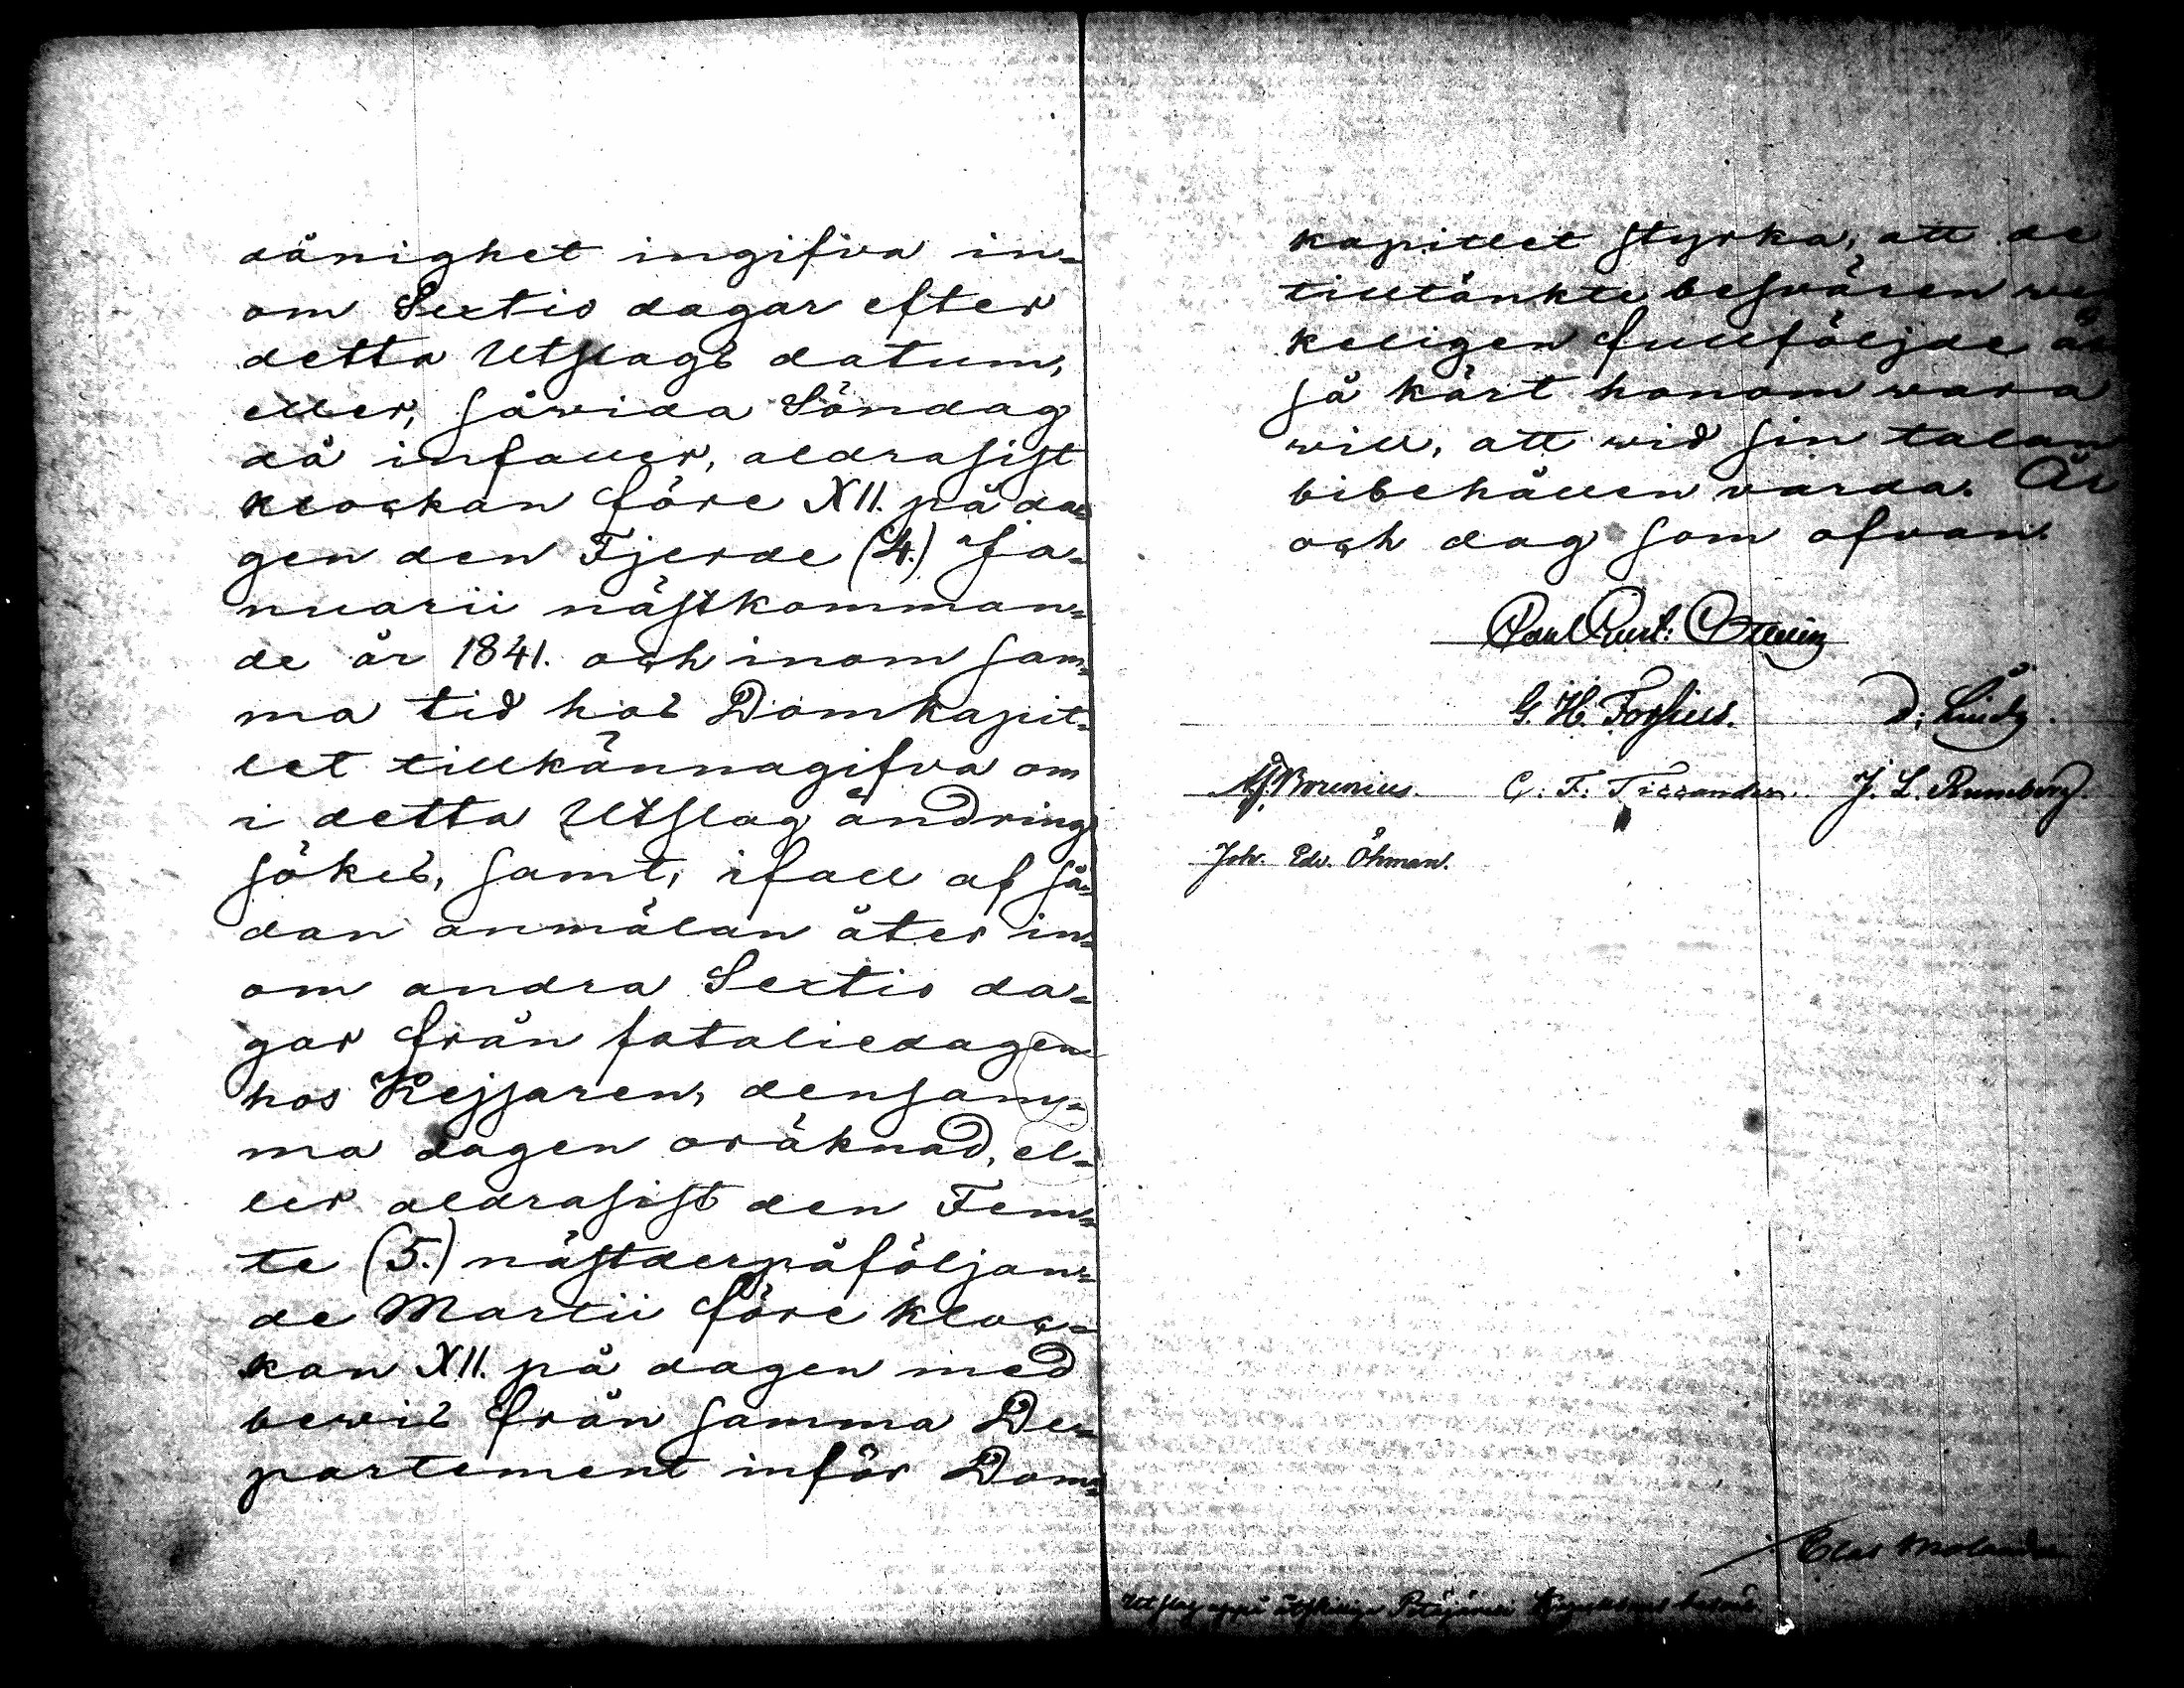 dånighet ingifva in-
om Sextio dagar efter
detta Utslags datum,
eller, såwida Söndag
då infaller, aldrasist
klockan före XII. på da-
gen den Fjerde (4.) Ja-
nuarii nästkomman-
de år 1841. och inom sam-
ma tid hos Domkapit-
let tillkännagifva om
i detta Utslag ändring
sökes, samt, ifall af så-
dan anmälan åter in-
om andra Sextio da-
gar från fataliedagen
hos Kejsaren, densam-
ma dagen oräknad, el-
ler aldrasist den Fem-
te (5.) nästderpåföljan-
de Martii före kloc-
kan XII. på dagen med
bewis från samma De-
partement inför Dom-
kapitlet styrka, att de
tilltänkte besvären wer
keligen fullföljde är
så kärt honom wara
will, att wid sin talan
bibehållen varda. År
och dag som ofvan.
G. H. Forsius.
J. L. Runeberg.
Joh. Edv. Öhman.
Utslag uppå åtskillige Pitäjänmä